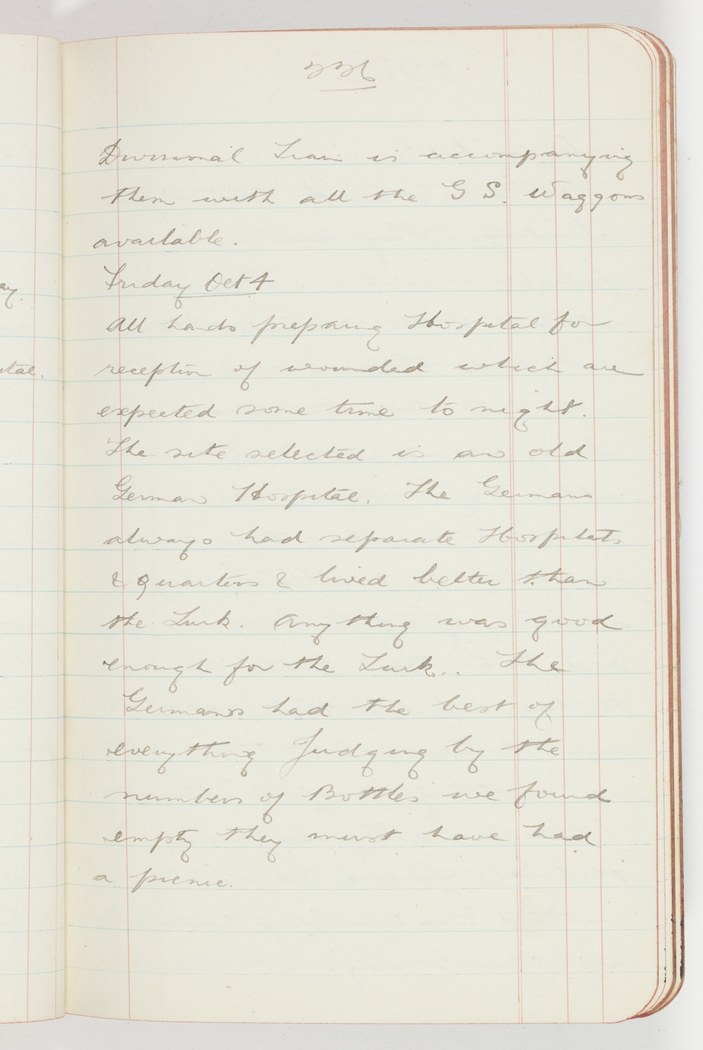 ay.
tal.
336
Divisional Train is accompanying
them with all the G S. Waggons
available.
Friday Oct 4
All hands preparing Hospital for
reception of wounded which are
expected some time to night.
The site selected is an old
German Hospital. The Germans
always had separate Hospitals
& quarters & lived better than
the Turk. Anything was good
enough for the Turk.. The
Germans had the best of
everything Judging by the
numbers of Bottles we found
empty they must have had
a picnic.